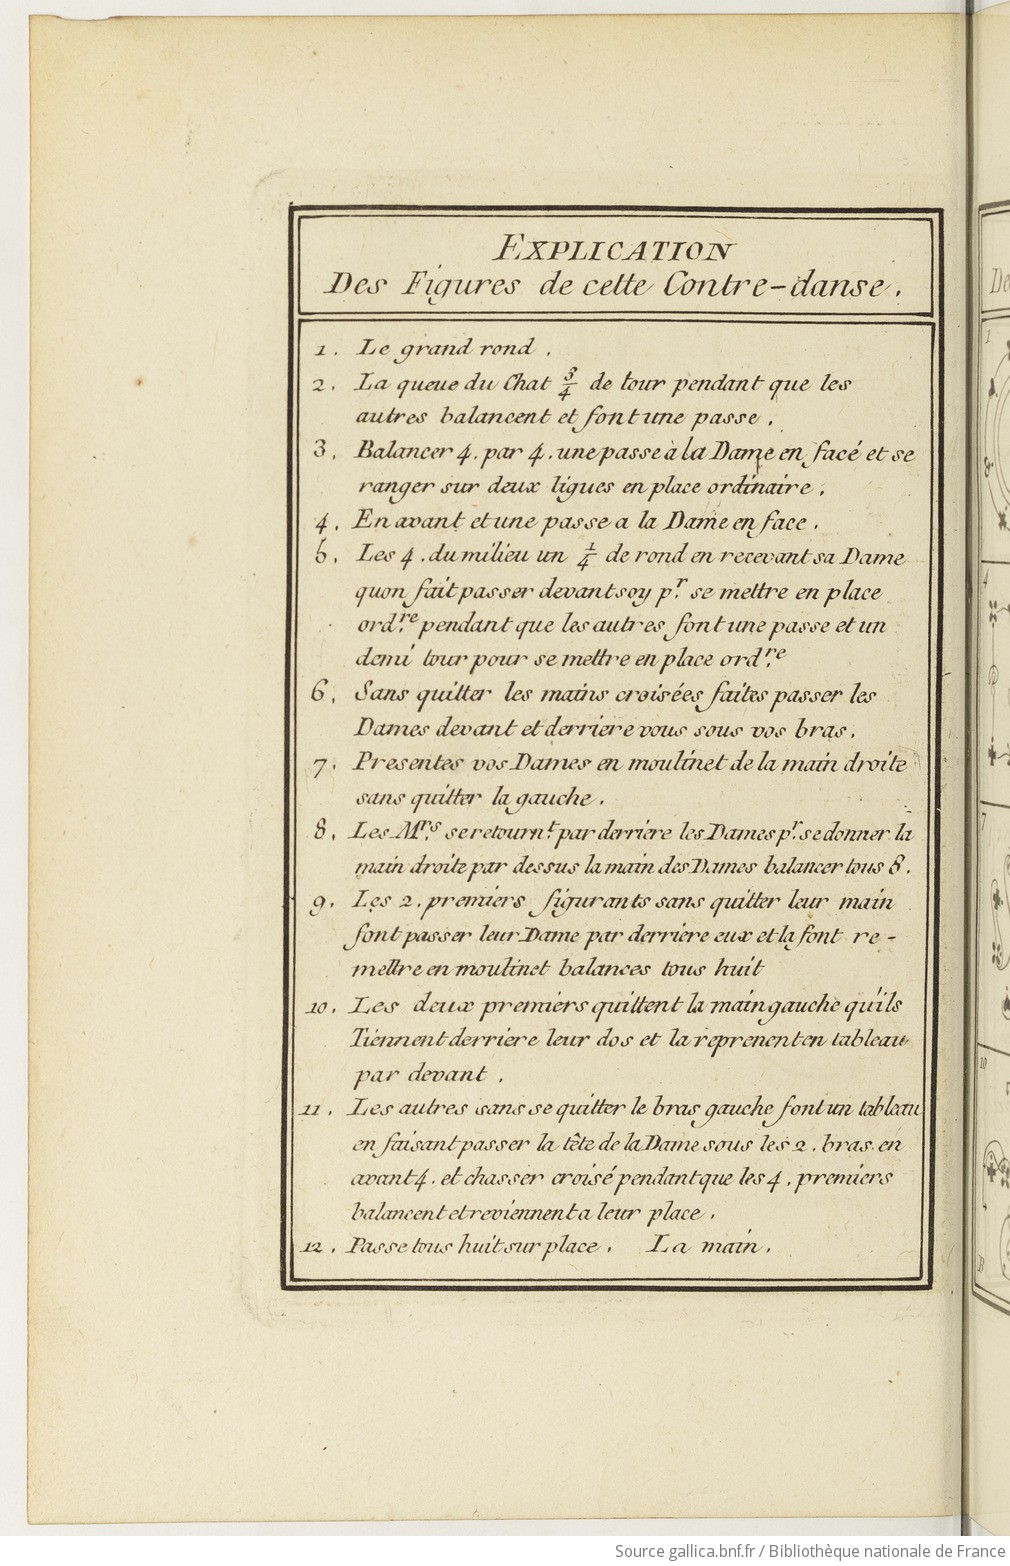 EXPLICATION
Des Figures de cette Contre-danse.
1. Le grand rond.
2. La queue du Chat 3/4 de tour pendant que les
autres balancent et font une passe.
3. Balancer 4. par 4. une passe à la Dame en facé et se
ranger sur deux ligues en place ordinaire.
4. En avant et une passe a la Dame en face.
5. Les 4. du milieu un 1/4 de rond en recevant sa Dame
quon fait passer devant soy pr. se mettre en place
ord.re pendant que les autres font une passe et un
demi tour pour se mettre en place ord.re
6. Sans quitter les mains croisées faites passer les
Dames devant et derriere vous sous vos bras.
7. Presentes vos Dames en moulinet de la main droite
sans quitter la gauche.
8. Les Mrs. se retournt. par derriere les Dames pr. se donner la
main droite par dessus la main des Dames balancer tous 8.
9. Les 2. premiers figurants sans quitter leur main
font passer leur Dame par derriere eux et la font re-
mettre en moulinet balances tous huit
10. Les deux premiers quittent la main gauche qu'ils
Tiennent derriere leur dos et la reprenent en tableau
par devant.
11. Les autres sans se quitter le bras gauche font un tableau
en faisant passer la tête de la Dame sous les 2. bras en
avant 4. et chasser croisé pendant que les 4. premiers
balancent et reviennent a leur place.
12. Passe tous huit sur place. La main.
De
1
4
7
10
Source gallica.bnf.fr / Bibliothèque nationale de France